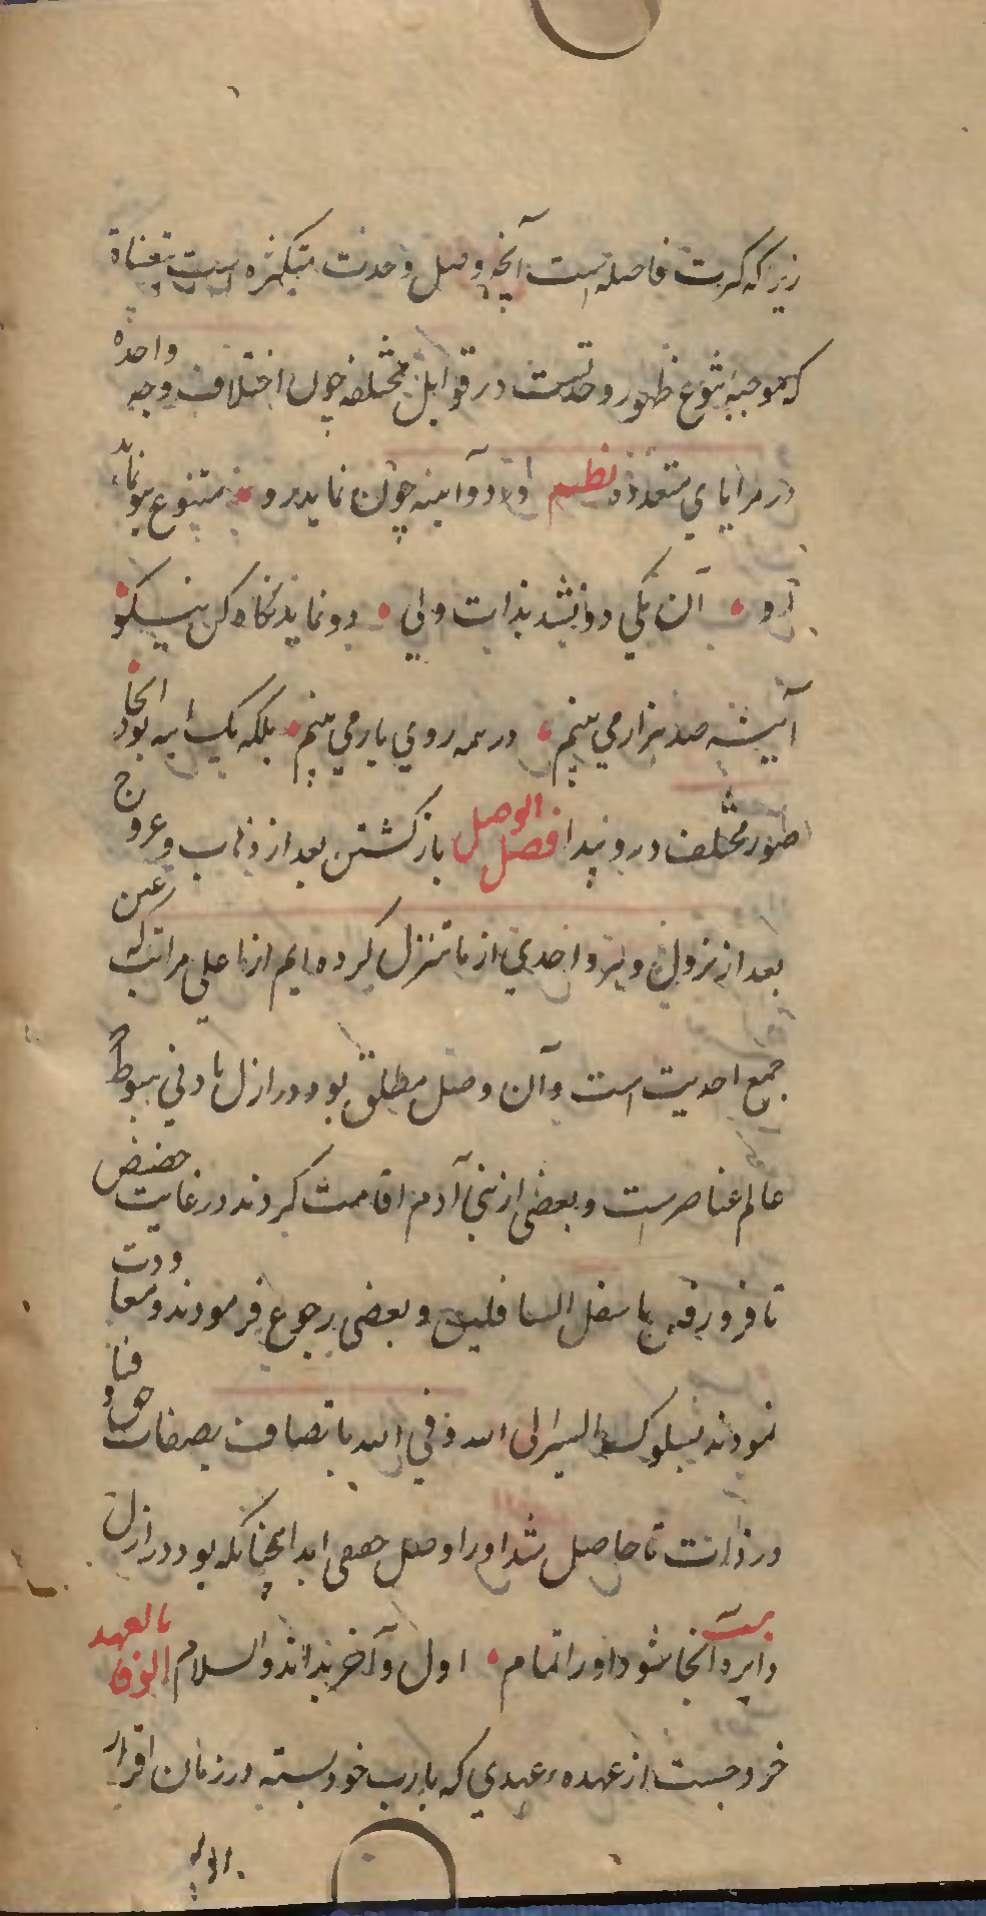 زیرکه کثرت فاصله است آنچه وصل وحدت متکثره است بتعینات
که موجبهٔ تنوع ظهور وحدتست در قوابل مختلفه چون اختلاف وجه واحده
در مرایای متعدده نظم او در دو آینه چون نماید رو متنوع بود نماید
او آن یکی دو نشد بذات ولی دو نماید نگاه کن نیکو
آیینه صد هزار می بینم در همه روی یار می بینم بلکه یک اینه بود انجا
صور مختلف درو پیدا فصل الوصل بازگشتن بعد از ذهاب و عروج
بعد از نزول و هر واحدی از ما تنزل کرده ایم از اعلی مراتب که عین
جمع احدیت است وآن وصل مطلق بود در ازل بادنی هبوط
عالم عناصرست و بعضی از بنی آدم اقامت کردند در غایت حضیض
تا فرو رفت باسفل السافلین و بعضی رجوع فرمودند و معاودت
نمودند بسلوک السیر الی الله و فی الله باتصاف بصفات حق و فنا
در ذات تا حاصل شد او را وصل حقیقی ابدا همچنانکه بود در ازل
بیت دایره آنجا شود او را تمام اول وآخر بداند والسلام الوفا بالعهد
خروجست از عهدهٔ عهدی که بارب خود بسته در زمان اقرار